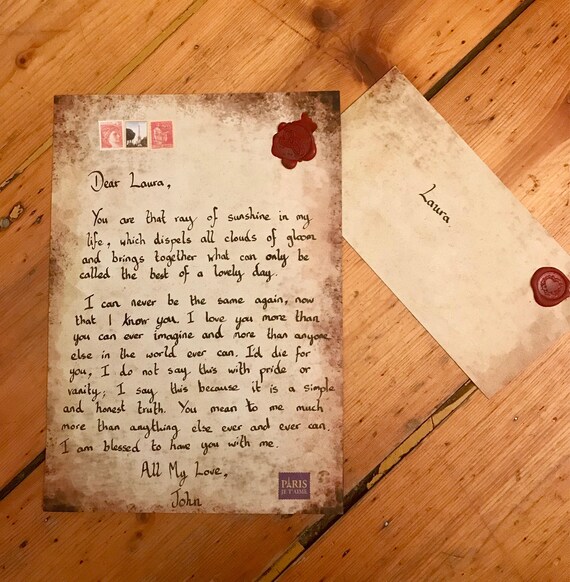 Dear Laura,
You are that ray of sunshine in my
life, which dispels all clouds of gloom
and brings together what can only be
called the best of a lovely day.
I can never be the same again, now
that I know you. I love you more than
you can ever imagine and more than anyone
else in the world ever can. I'd die for
you, I do not say this with pride or
vanity; I say this because it is a simple
and honest truth. You mean to me much
more than anything else ever and ever can.
I am blessed to have you with me.
All My Love,
John
PARIS
JE T'AIME
Laura